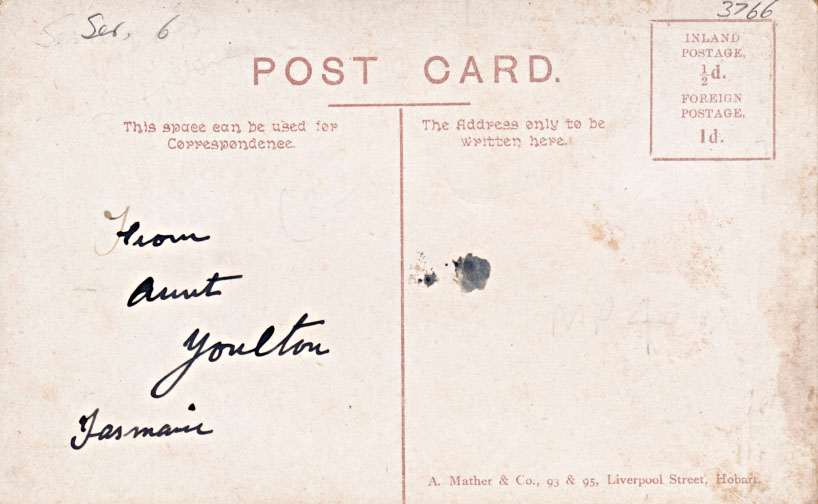 Ser. 6
3766
POST CARD.
INLAND
POSTAGE,
½d.
FOREIGN
POSTAGE,
1d.
This space can be used for
Correspondence.
The Address only to be
written here.
From
Aunt
Youlton
Tasmain
MP4
A. Mather & Co., 93 & 95, Liverpool Street, Hobart.